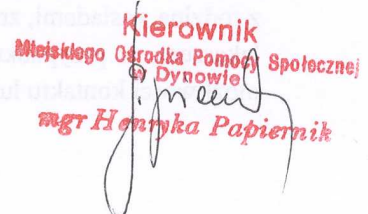 Kierownik
Miejskiego Ośrodka Pomocy Społecznej
w Dynowie
mgr Henryka Papiernik